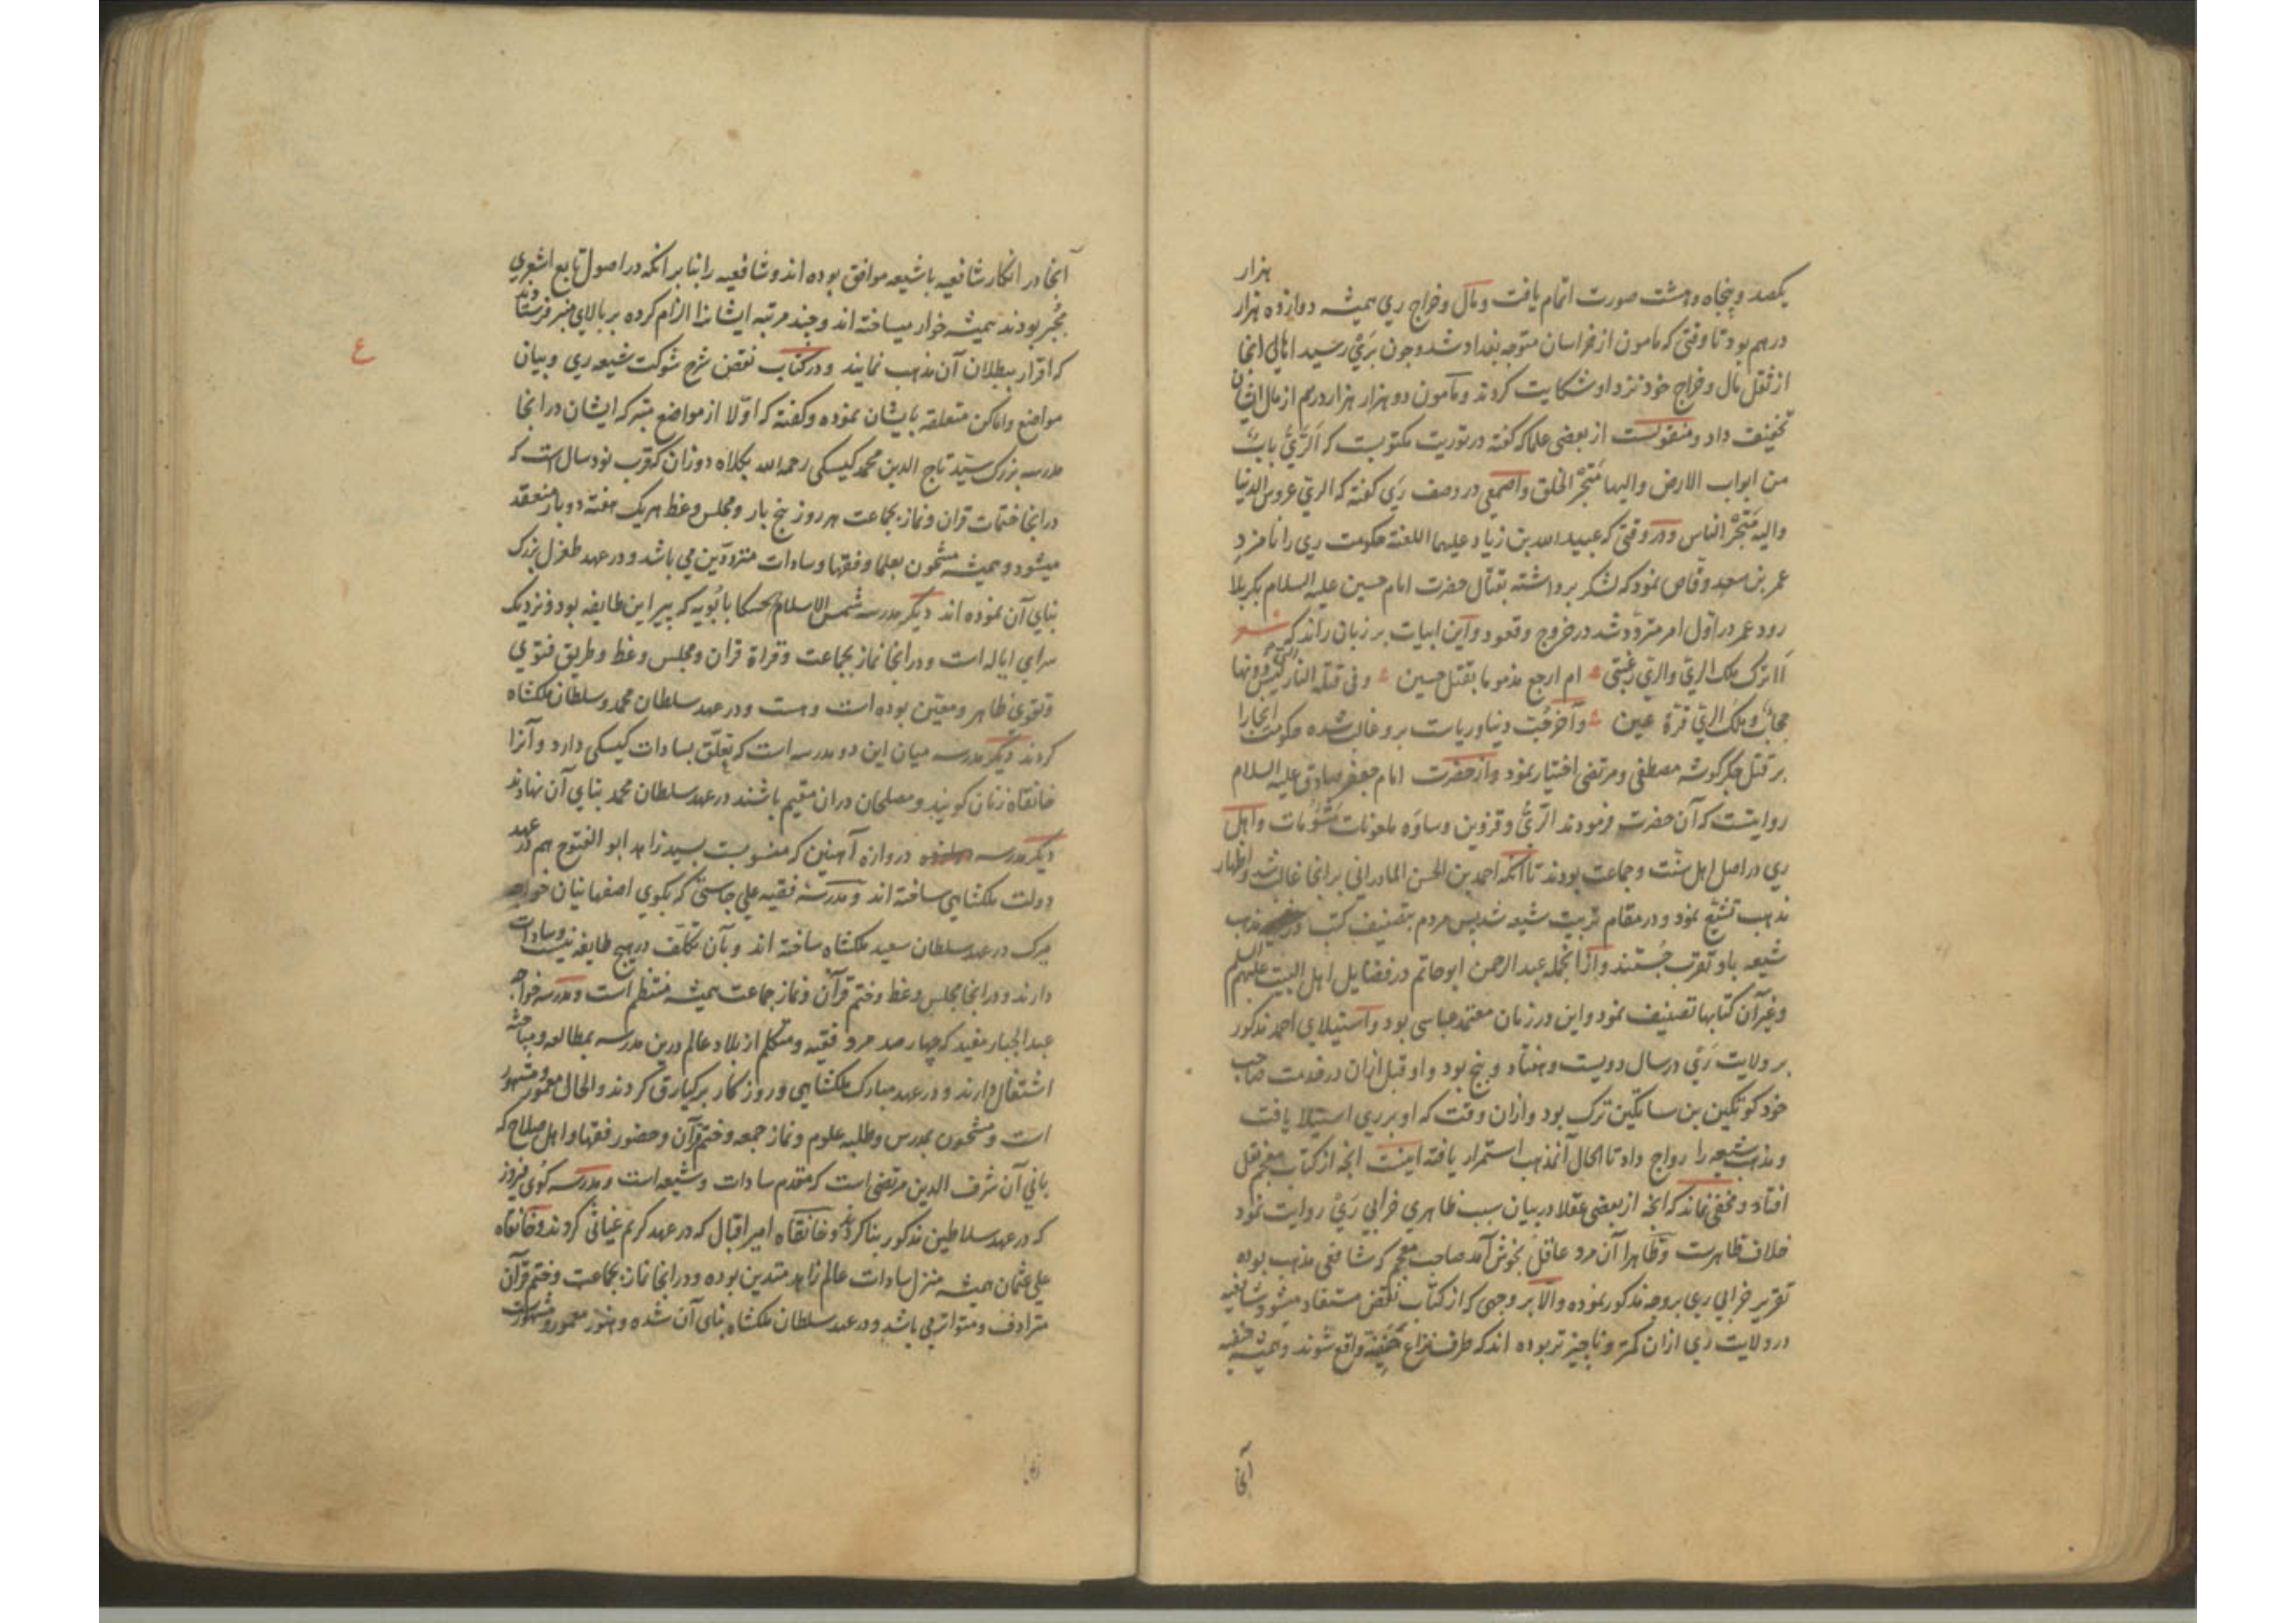 هزار
یکصد و پنجاه و هشت صورت اتمام یافت و مال و خراج ری همیشه دوازده هزار
درهم بود تا وقتی که مامون از خراسان متوجه بغداد شد و چون بری رسید اهالی انجا
از ثقل مال و خراج خود نزد او شکایت کردند و مامون دو هزار هزار درهم از مال ایشان
تخفیف داد و منقولست از بعضی علما که گفته در توریت مکتوبست که الری باب
من ابواب الارض والیها متجر الخلق و اصمعی در وصف ری گفته که الری عروس الدنیا
والیه متجر الناس و در وقتی که عبیدالله بن زیاد علیهما اللعنة حکومت ری را نامزد
عمر بن سعد وقاص نمود که لشکر برداشته بقتال حضرت امام حسین علیه السلام بکربلا
رود عمر در اول امر متردد شد در خروج و قعود و این ابیات بر زبان راند که شعر
أاترک ملک الری والری رغبتی ام ارجع مذموما بقتل حسین وفی قتله النار لیس دونها
حجاب وملک الری قرة عین و آخر حب دنیا و ریاست برو غالب شده حکومت انجا را
بر قتل جگرگوشه مصطفی و مرتضی اختیار نمود و از حضرت امام جعفر صادق علیه السلام
روایتست که آن حضرت فرمودند الری و قزوین و ساوه ملعونات مشؤمات و اهل
ری در اصل اهل سنت و جماعت بودند تا آنکه احمد بن الحسن المادرانی بر انجا غالب شد و اظهار
مذهب تشیع نمود و در مقام تربیت شیعه شد پس مردم بتصنیف کتب در مذهب
شیعه باو تقرب جستند و از انجمله عبد الرحمن ابو حاتم در فضایل اهل البیت علیهم السلم
وغیر آن کتابها تصنیف نمود و این در زمان معتمد عباسی بود و استیلای احمد مذکور
بر ولایت ری در سال دویست و هفتاد و پنج بود و او قبل ازان در خدمت صاحب
خود کوتکین بن ساتکین ترک بود و ازان وقت که او بر ری استیلا یافت
و مذهب شیعه را رواج داد تا الحال آنمذهب استمرار یافته اینست انچه از کتاب معجم نقل
افتاد و مخفی نماند که انچه از بعضی عقلا در بیان سبب ظاهری خرابی ری روایت نمود
خلاف ظاهرست و ظاهرا آن مرد عاقل بخوش آمد صاحب معجم که شافعی مذهب بوده
تقریر خرابی ری بروجه مذکور نموده والا بر وجهی که از کتاب نقض مستفاد میشود شافعیه
در ولایت ری ازان کمتر و ناچیزتر بوده اند که طرف نزاع حنفیه واقع شوند و همیشه حنفیه
آنجا
آنجا در انکار شافعیه با شیعه موافق بوده اند و شافعیه را بنا بر انکه در اصول تابع اشعری
مجبر بودند همیشه خوار میساخته اند و چند مرتبه ایشانرا الزام کرده بر بالای منبر فرستادند
که اقرار ببطلان آن مذهب نمایند و در کتاب نقض شرح شوکت شیعه ری و بیان
مواضع و اماکن متعلقه بایشان نموده و گفته که اولا از مواضع متبرکه ایشان در انجا
مدرسه بزرک سید تاج الدین محمد کیسکی رحمه الله بکلاه دوزان که قرب نود سال است که
در انجا ختمات قران و نماز بجماعت هر روز پنج بار و مجلس وعظ هر یک هفته دو بار منعقد
میشود و همیشه مشحون بعلما و فقها و سادات متردّدین می باشد و در عهد طغرل بزرک
بنای آن نموده اند دیگر مدرسه شمس الاسلام حسکا بابویه که پیر این طایفه بود و نزدیک
سرای ایاله است و در انجا نماز بجماعت و قراة قران و مجلس وعظ و طریق فتوی
و تقوی ظاهر و معین بوده است و هست و در عهد سلطان محمد و سلطان ملکشاه
کردند دیگر مدرسه میان این دو مدرسه است که تعلق بسادات کیسکی دارد و آنرا
خانقاه زنان گویند و مصلحان دران مقیم باشند در عهد سلطان محمد بنای آن نهادند
دیگر مدرسه دروازه آهنین که منسوبست بسید زاهد ابو الفتوح هم در عهد
دولت ملکشاهی ساخته اند و مدرسه فقیه علی جاستی که بکوی اصفهانیان خواجه
میرک در عهد سلطان سعید ملکشاه ساخته اند و بآن تکلف در هیچ طایفه نیست و سادات
دارند و در انجا مجلس وعظ و ختم قرآن و نماز جماعت همیشه منتظم است و مدرسه خواجه
عبد الجبار مفید که چهار صد مرد فقیه و متکلم از بلاد عالم درین مدرسه بمطالعه و مباحثه
اشتغال دارند و در عهد مبارک ملکشاهی و روزگار برکیارق کردند و الحال معمور و مشهور
است و مشحون بمدرس و طلبه علوم و نماز جمعه و ختم قرآن و حضور فقها و اهل صلاح که
بانی آن شرف الدین مرتضی است که مقدم سادات و شیعه است و مدرسه کوی فیروز
که در عهد سلاطین مذکور بنا کردند و خانقاه امیر اقبال که در عهد کرم غیاثی کردند و خانقاه
علی عثمان همیشه منزل سادات عالم زاهد متدین بوده و در انجا نماز بجماعت و ختم قرآن
مترادف و متواتر می باشد و در عهد سلطان ملکشاه بنای آن شده و هنوز معمور و مشهورست
ع